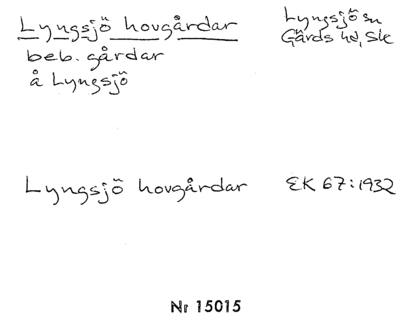 Lyngsjö hovgårdar
Lyngsjö sn
Gärds hd, Sk
beb. gårdar
å Lyngsjö
Lyngsjö hovgårdar
EK 67:1932
Nr 15015